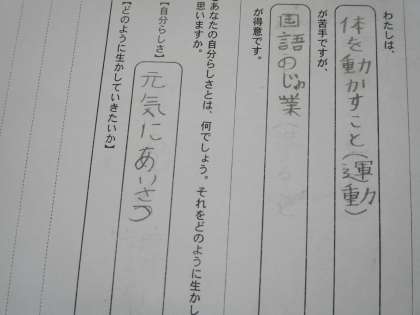 わたしは、
体を動かすこと(運動)
が苦手ですが、
国語のじゅ業
が得意です。
あなたの自分らしさとは、何でしょう。それをどのように生かし
思いますか。
【自分らしさ】
元気にあいさつ
【どのように生かしていきたいか】